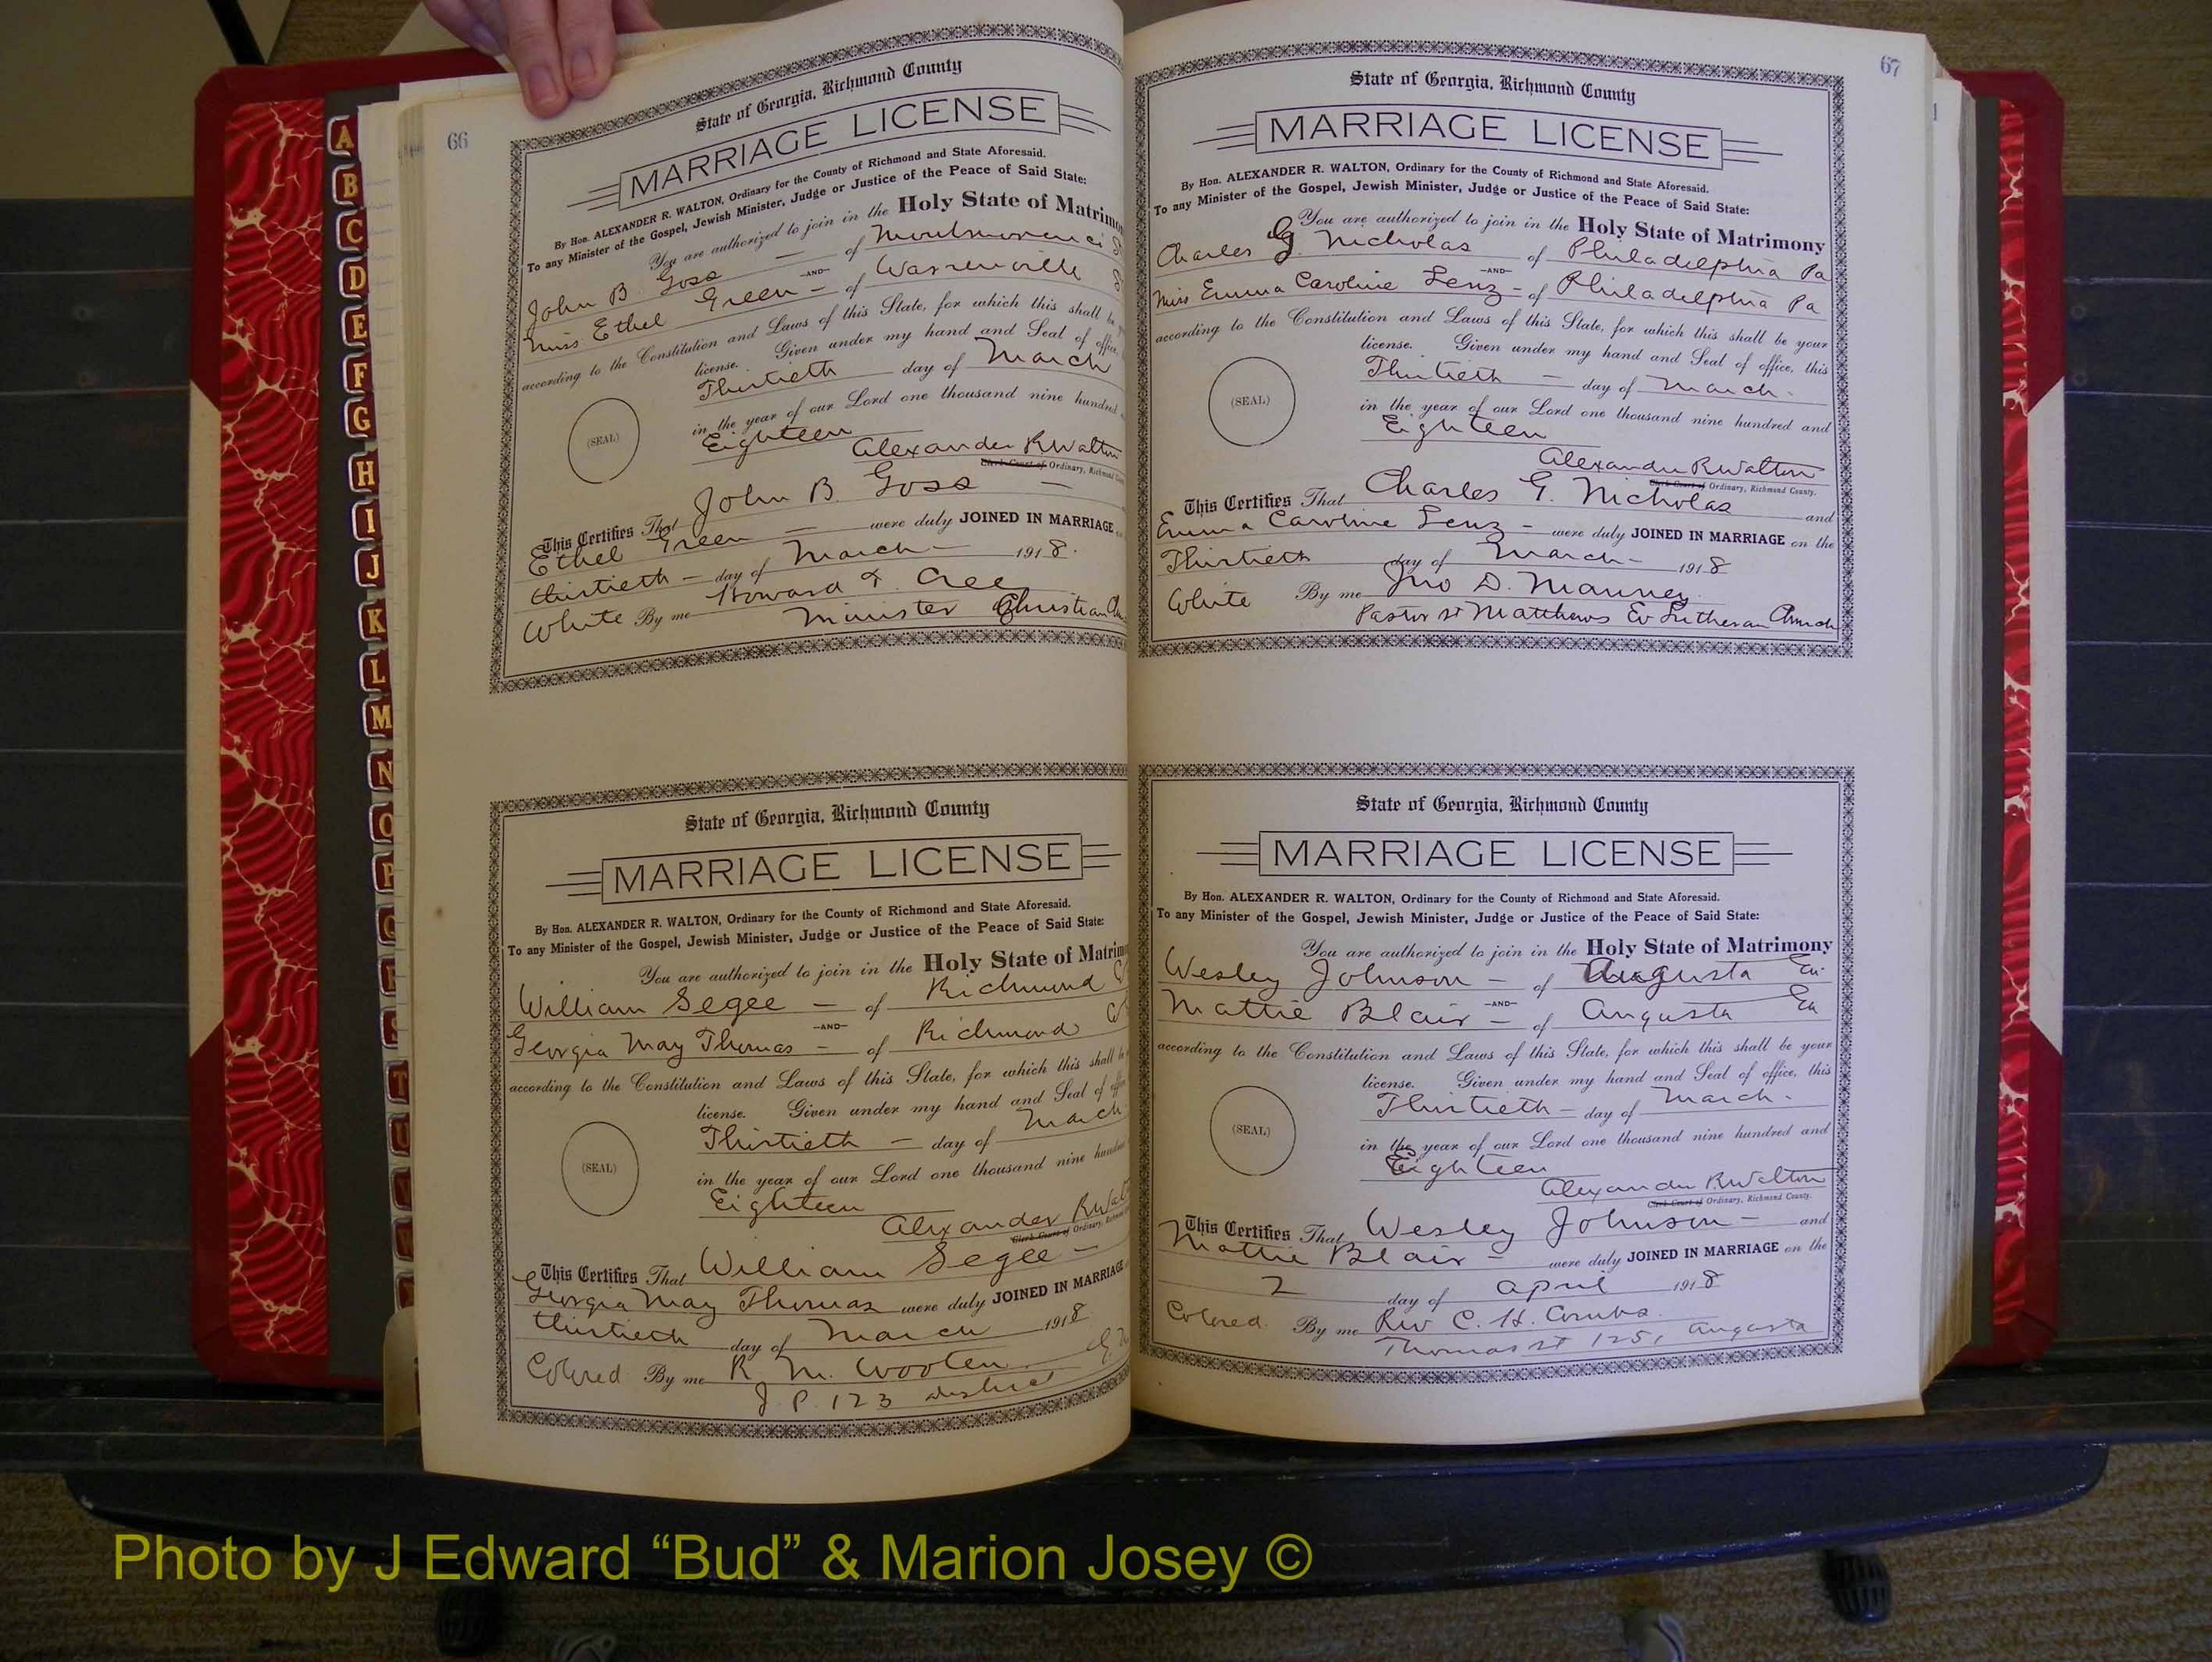 66
State of Georgia, Richmond County
MARRIAGE LICENSE
By Hon. ALEXANDER R. WALTON, Ordinary for the County of Richmond and State Aforesaid.
To any Minister of the Gospel, Jewish Minister, Judge or Justice of the Peace of Said State:
You are authorized to join in the Holy State of Matrimo
John B. Goss — of Montmorenci
—AND—
Miss Ethel Green — of Warrenville
according to the Constitution and Laws of this State, for which this shall be
license. Given under my hand and Seal of office,
Thirtieth day of March
(SEAL)
in the year of our Lord one thousand nine hundred
Eighteen
Alexander R Walton
Clerk Court of Ordinary, Richmond
This Certifies That John B. Goss —
Ethel Green — were duly JOINED IN MARRIAGE
thirtieth — day of March — 1918.
White By me Howard T. Cree
Minister Christian
State of Georgia, Richmond County
MARRIAGE LICENSE
By Hon. ALEXANDER R. WALTON, Ordinary for the County of Richmond and State Aforesaid.
To any Minister of the Gospel, Jewish Minister, Judge or Justice of the Peace of Said State:
You are authorized to join in the Holy State of Matrim
William Segee — of Richmond
—AND—
Georgia May Thomas — of Richmond
according to the Constitution and Laws of this State, for which this shall be
license. Given under my hand and Seal of
Thirtieth — day of March
(SEAL)
in the year of our Lord one thousand nine hundred
Eighteen
Alexander R Walt
Clerk Court of Ordinary,
This Certifies That William Segee —
Georgia May Thomas were duly JOINED IN MARRIAGE
thirtieth day of March 1918
Colored By me R. M. Wooten
J. P. 123 district
67
State of Georgia, Richmond County
MARRIAGE LICENSE
By Hon. ALEXANDER R. WALTON, Ordinary for the County of Richmond and State Aforesaid.
To any Minister of the Gospel, Jewish Minister, Judge or Justice of the Peace of Said State:
You are authorized to join in the Holy State of Matrimony
Charles G. Nicholas of Philadelphia Pa
—AND—
Miss Emma Caroline Lenz — of Philadelphia Pa
according to the Constitution and Laws of this State, for which this shall be your
license. Given under my hand and Seal of office, this
Thirtieth — day of March.
(SEAL)
in the year of our Lord one thousand nine hundred and
Eighteen
Alexander R Walton
Clerk Court of Ordinary, Richmond County.
This Certifies That Charles G. Nicholas and
Emma Caroline Lenz — were duly JOINED IN MARRIAGE on the
Thirtieth day of March — 1918
White By me Jno D. Mauney
Pastor St Matthews Ev Lutheran Church
State of Georgia, Richmond County
MARRIAGE LICENSE
By Hon. ALEXANDER R. WALTON, Ordinary for the County of Richmond and State Aforesaid.
To any Minister of the Gospel, Jewish Minister, Judge or Justice of the Peace of Said State:
You are authorized to join in the Holy State of Matrimony
Wesley Johnson — of Augusta Ga
—AND—
Mattie Blair — of Augusta Ga
according to the Constitution and Laws of this State, for which this shall be your
license. Given under my hand and Seal of office, this
Thirtieth — day of March.
(SEAL)
in the year of our Lord one thousand nine hundred and
Eighteen
Alexander R Walton
Clerk Court of Ordinary, Richmond County.
This Certifies That Wesley Johnson — and
Mattie Blair — were duly JOINED IN MARRIAGE on the
2 day of April 1918
Colored. By me Rev C. H. Combs.
Thomas st 1251 Augusta
A
B
C
D
E
F
G
H
I
J
K
L
M
N
O
P
Q
T
U
Photo by J Edward “Bud” & Marion Josey ©